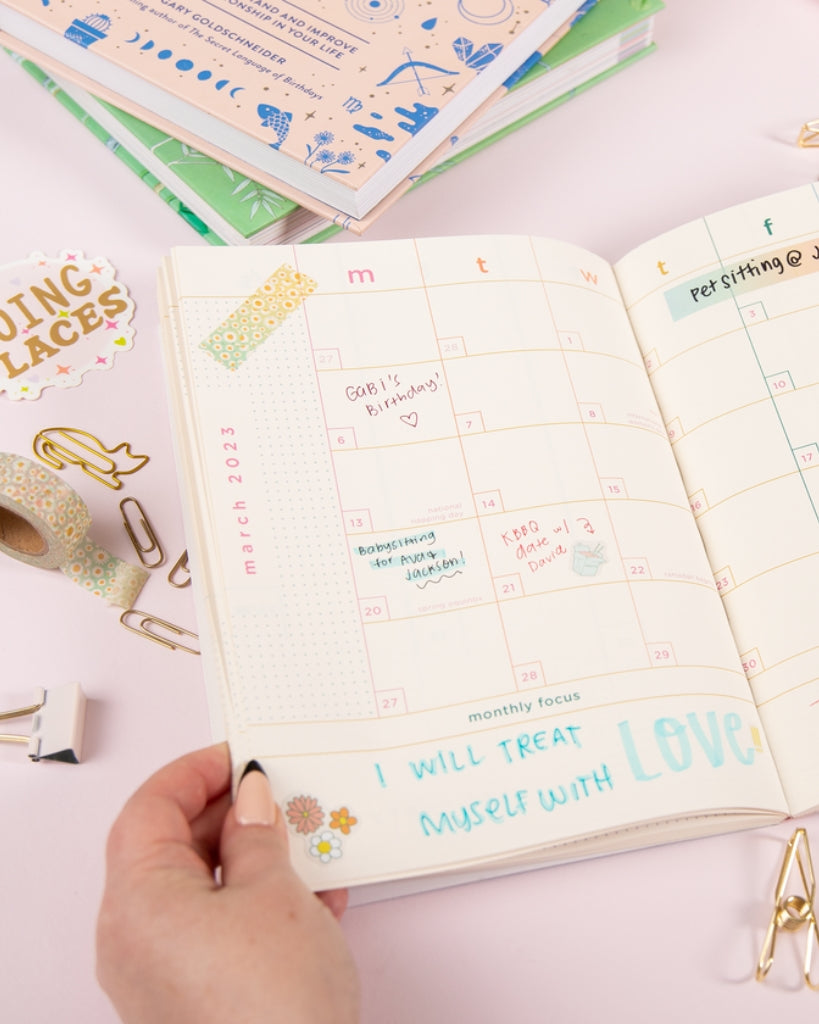 AND AND IMPROVE
ONSHIP IN YOUR LIFE
GARY GOLDSCHNEIDER
author of The Secret Language of Birthdays
OING
LACES
m t w t f
Petsitting @ J
27 28 1 2 3
Gabi's
Birthday!
6 7 8 9 10
march 2023
13 14 15 16 17
national
napping day
Babysitting
for Ava &
Jackson!
KBBQ
date w/
David
20 21 22 23
spring equinox
27 28 29 30
monthly focus
I WILL TREAT
MYSELF WITH
LOVE!